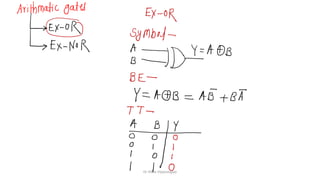 Arithmatic gates
EX-OR
EX-NOR
EX-OR
Symbol-
A
B
Y=A⊕B
BE-
Y=A⊕B = AB̅ + BA̅
TT-
A B Y
0 0 0
0 1 1
1 0 1
1 1 0